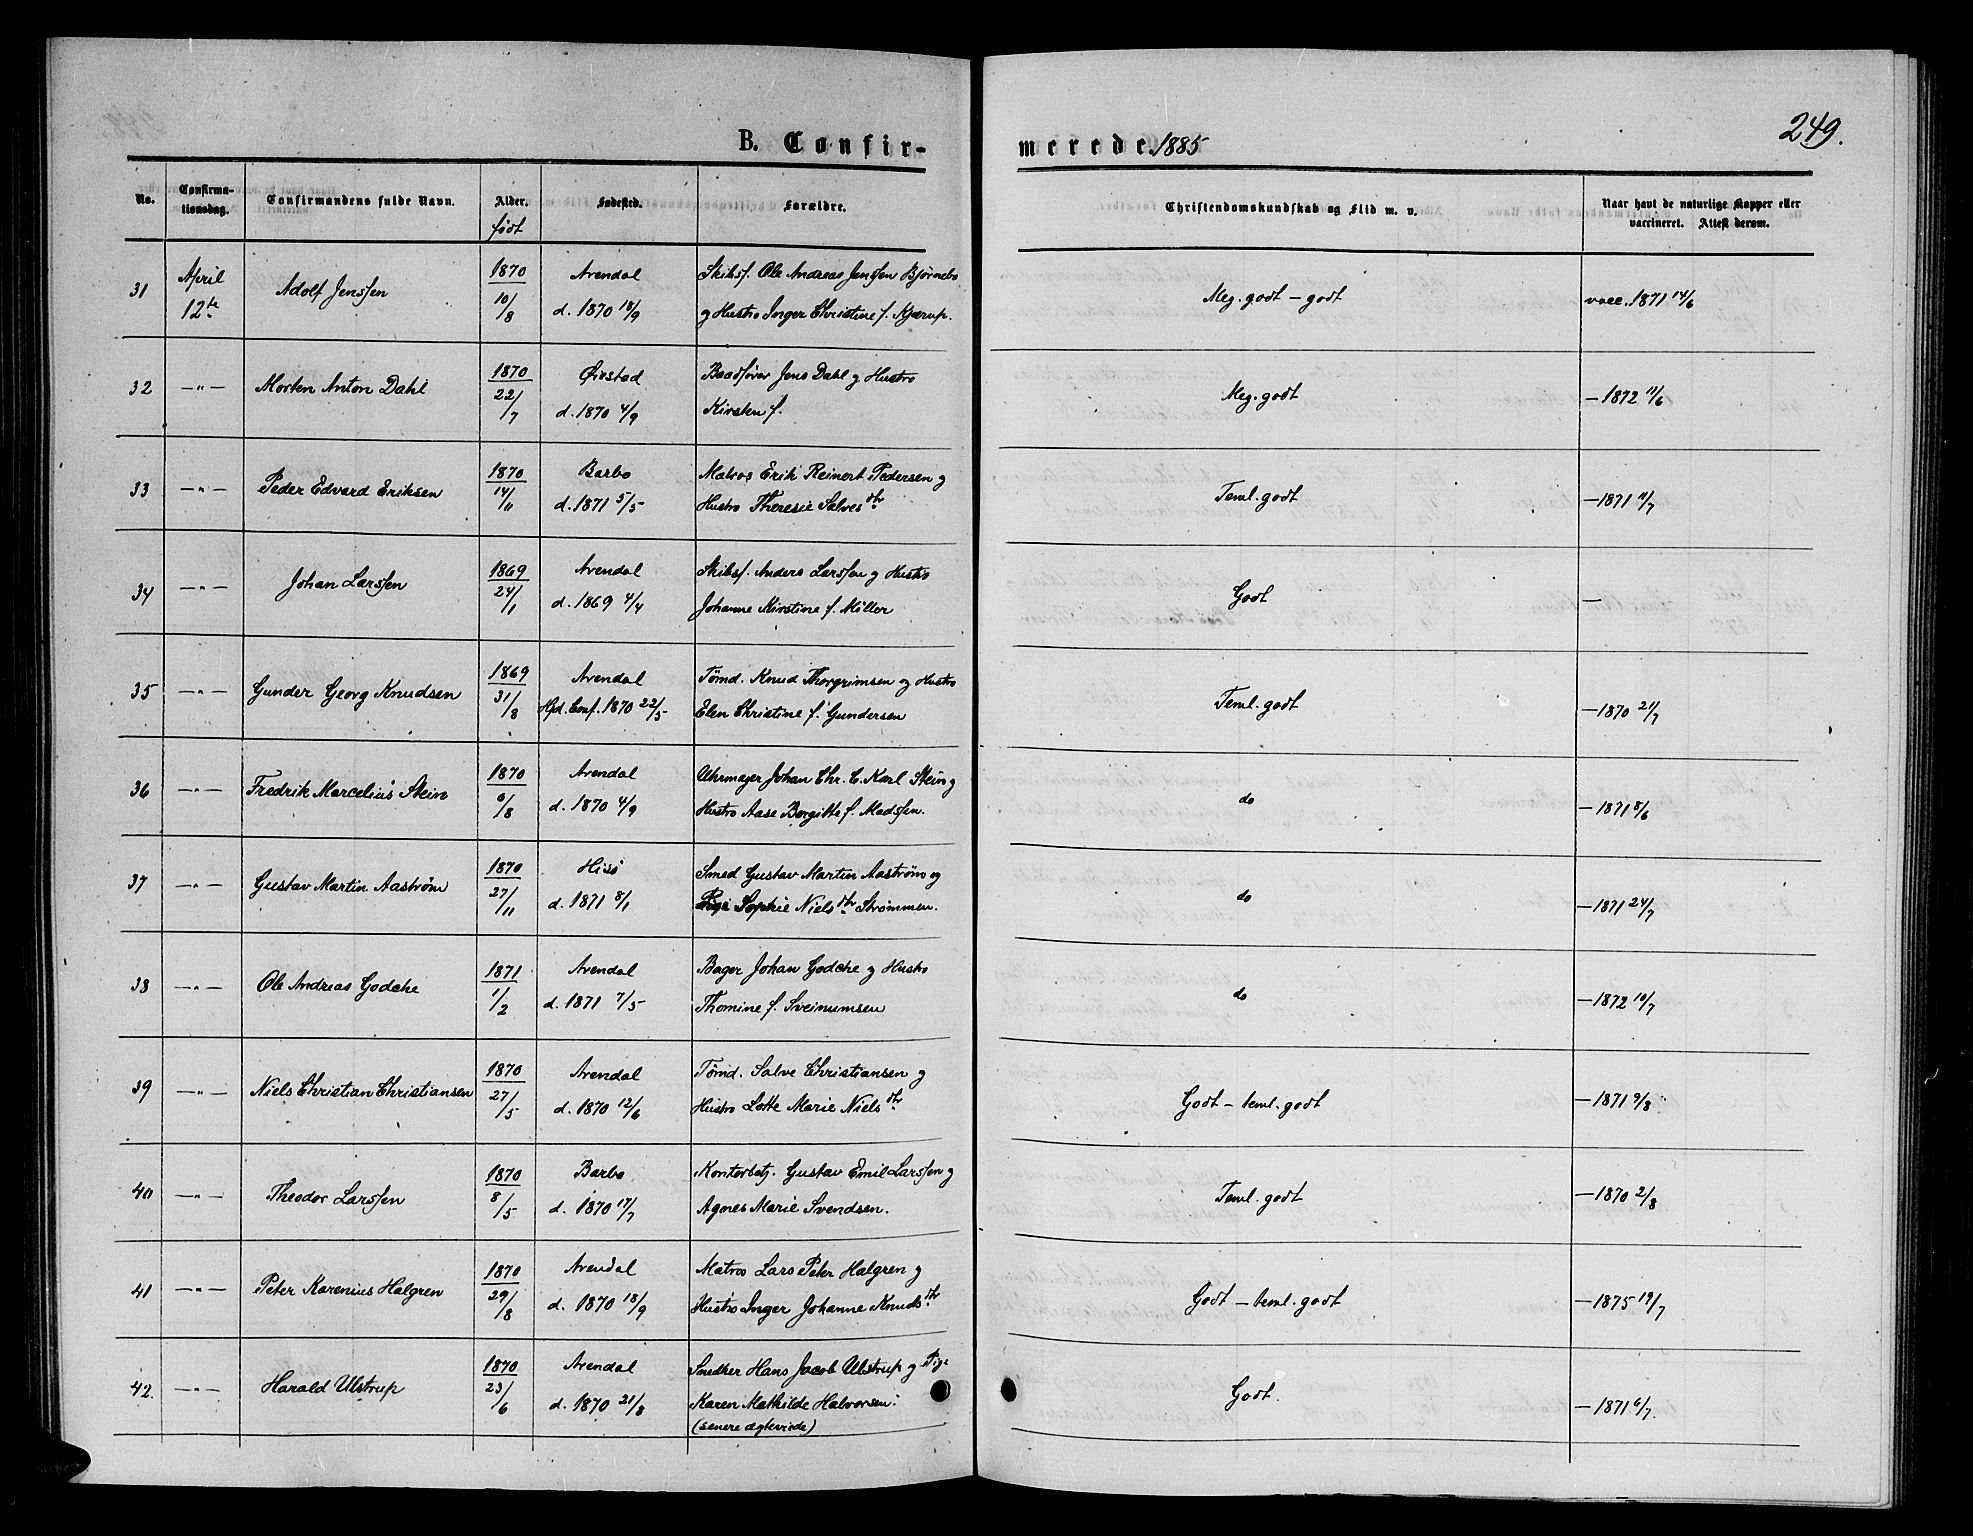 249.
B. Confir-
merede 1885
No. Confirma-tionsdag. Confirmandens fulde Navn. Alder. født Fødested. Forældre. Christendomskundskab og Flid m. v. Naar havt de naturlige Kopper eller vaccineret. Attest derom.
31 April 12te Adolf Jenssen 1870 10/8 Arendal d. 1870 18/9 Skibsf. Ole Andreas Jenssen Bjørnebo
og Hustro Inger Christine f. Kjærup. Meg. godt – godt vacc. 1871 14/6
32 —"— Morten Anton Dahl 1870 22/7 Øiestad d. 1870 4/9 Baadfører Jens Dahl og Hustro
Kirsten f. Meg. godt — 1872 11/6
33 —"— Peder Edvard Eriksen 1870 14/11 Barbo d. 1871 5/5 Matros Erik Reinert Pedersen og
Hustro Theresie Salvesdtr Teml. godt — 1871 11/7
34 —"— Johan Larssen 1869 24/1 Arendal d. 1869 4/4 Skibsf. Anders Larssen og Hustro
Johanne Kirstine f. Møller Godt —
35 —"— Gunder Georg Knudsen 1869 31/8 Arendal Hjd. Conf. 1870 22/5 Tømd. Knud Thorgrimsen og Hustro
Elen Christine f. Gundersen Teml. godt — 1870 21/7
36 —"— Fredrik Marcelius Stein 1870 6/8 Arendal d. 1870 4/9 Uhrmager Johan Chr. C. Karl Stein og
Hustro Aase Borgitte f. Madssen. do — 1871 8/6
37 —"— Gustav Martin Aastrøm 1870 27/11 Hisø d. 1871 8/1 Smed Gustav Martin Aastrøm og
Pige Sophie Nielsdtr Strømmen. do — 1871 24/7
38 —"— Ole Andreas Godche 1871 1/2 Arendal d. 1871 7/5 Bager Johan Godche og Hustro
Thomine f. Sveinumsen do — 1872 10/7
39 —"— Niels Christian Christiansen 1870 27/5 Arendal d. 1870 12/6 Tømd. Salve Christiansen og
Hustro Lotte Marie Nielsdtr Godt – teml. godt — 1871 9/8
40 —"— Theodor Larssen 1870 8/5 Barbo d. 1870 17/7 Kontorbetj. Gustav Emil Larssen og
Agnes Marie Svendsen. Teml. godt — 1870 2/8
41 —"— Peter Karenius Halgren 1870 29/8 Arendal d. 1870 18/9 Matros Lars Peter Halgren og
Hustro Inger Johanne Knudsdtr Godt – teml. godt — 1875 19/7
42. —"— Harald Ulstrup 1870 23/6 Arendal d. 1870 21/8 Snedker Hans Jacob Ulstrup og Pige
Karen Mathilde Halvorsen.
(senere ægteviede) Godt. — 1871 6/7.